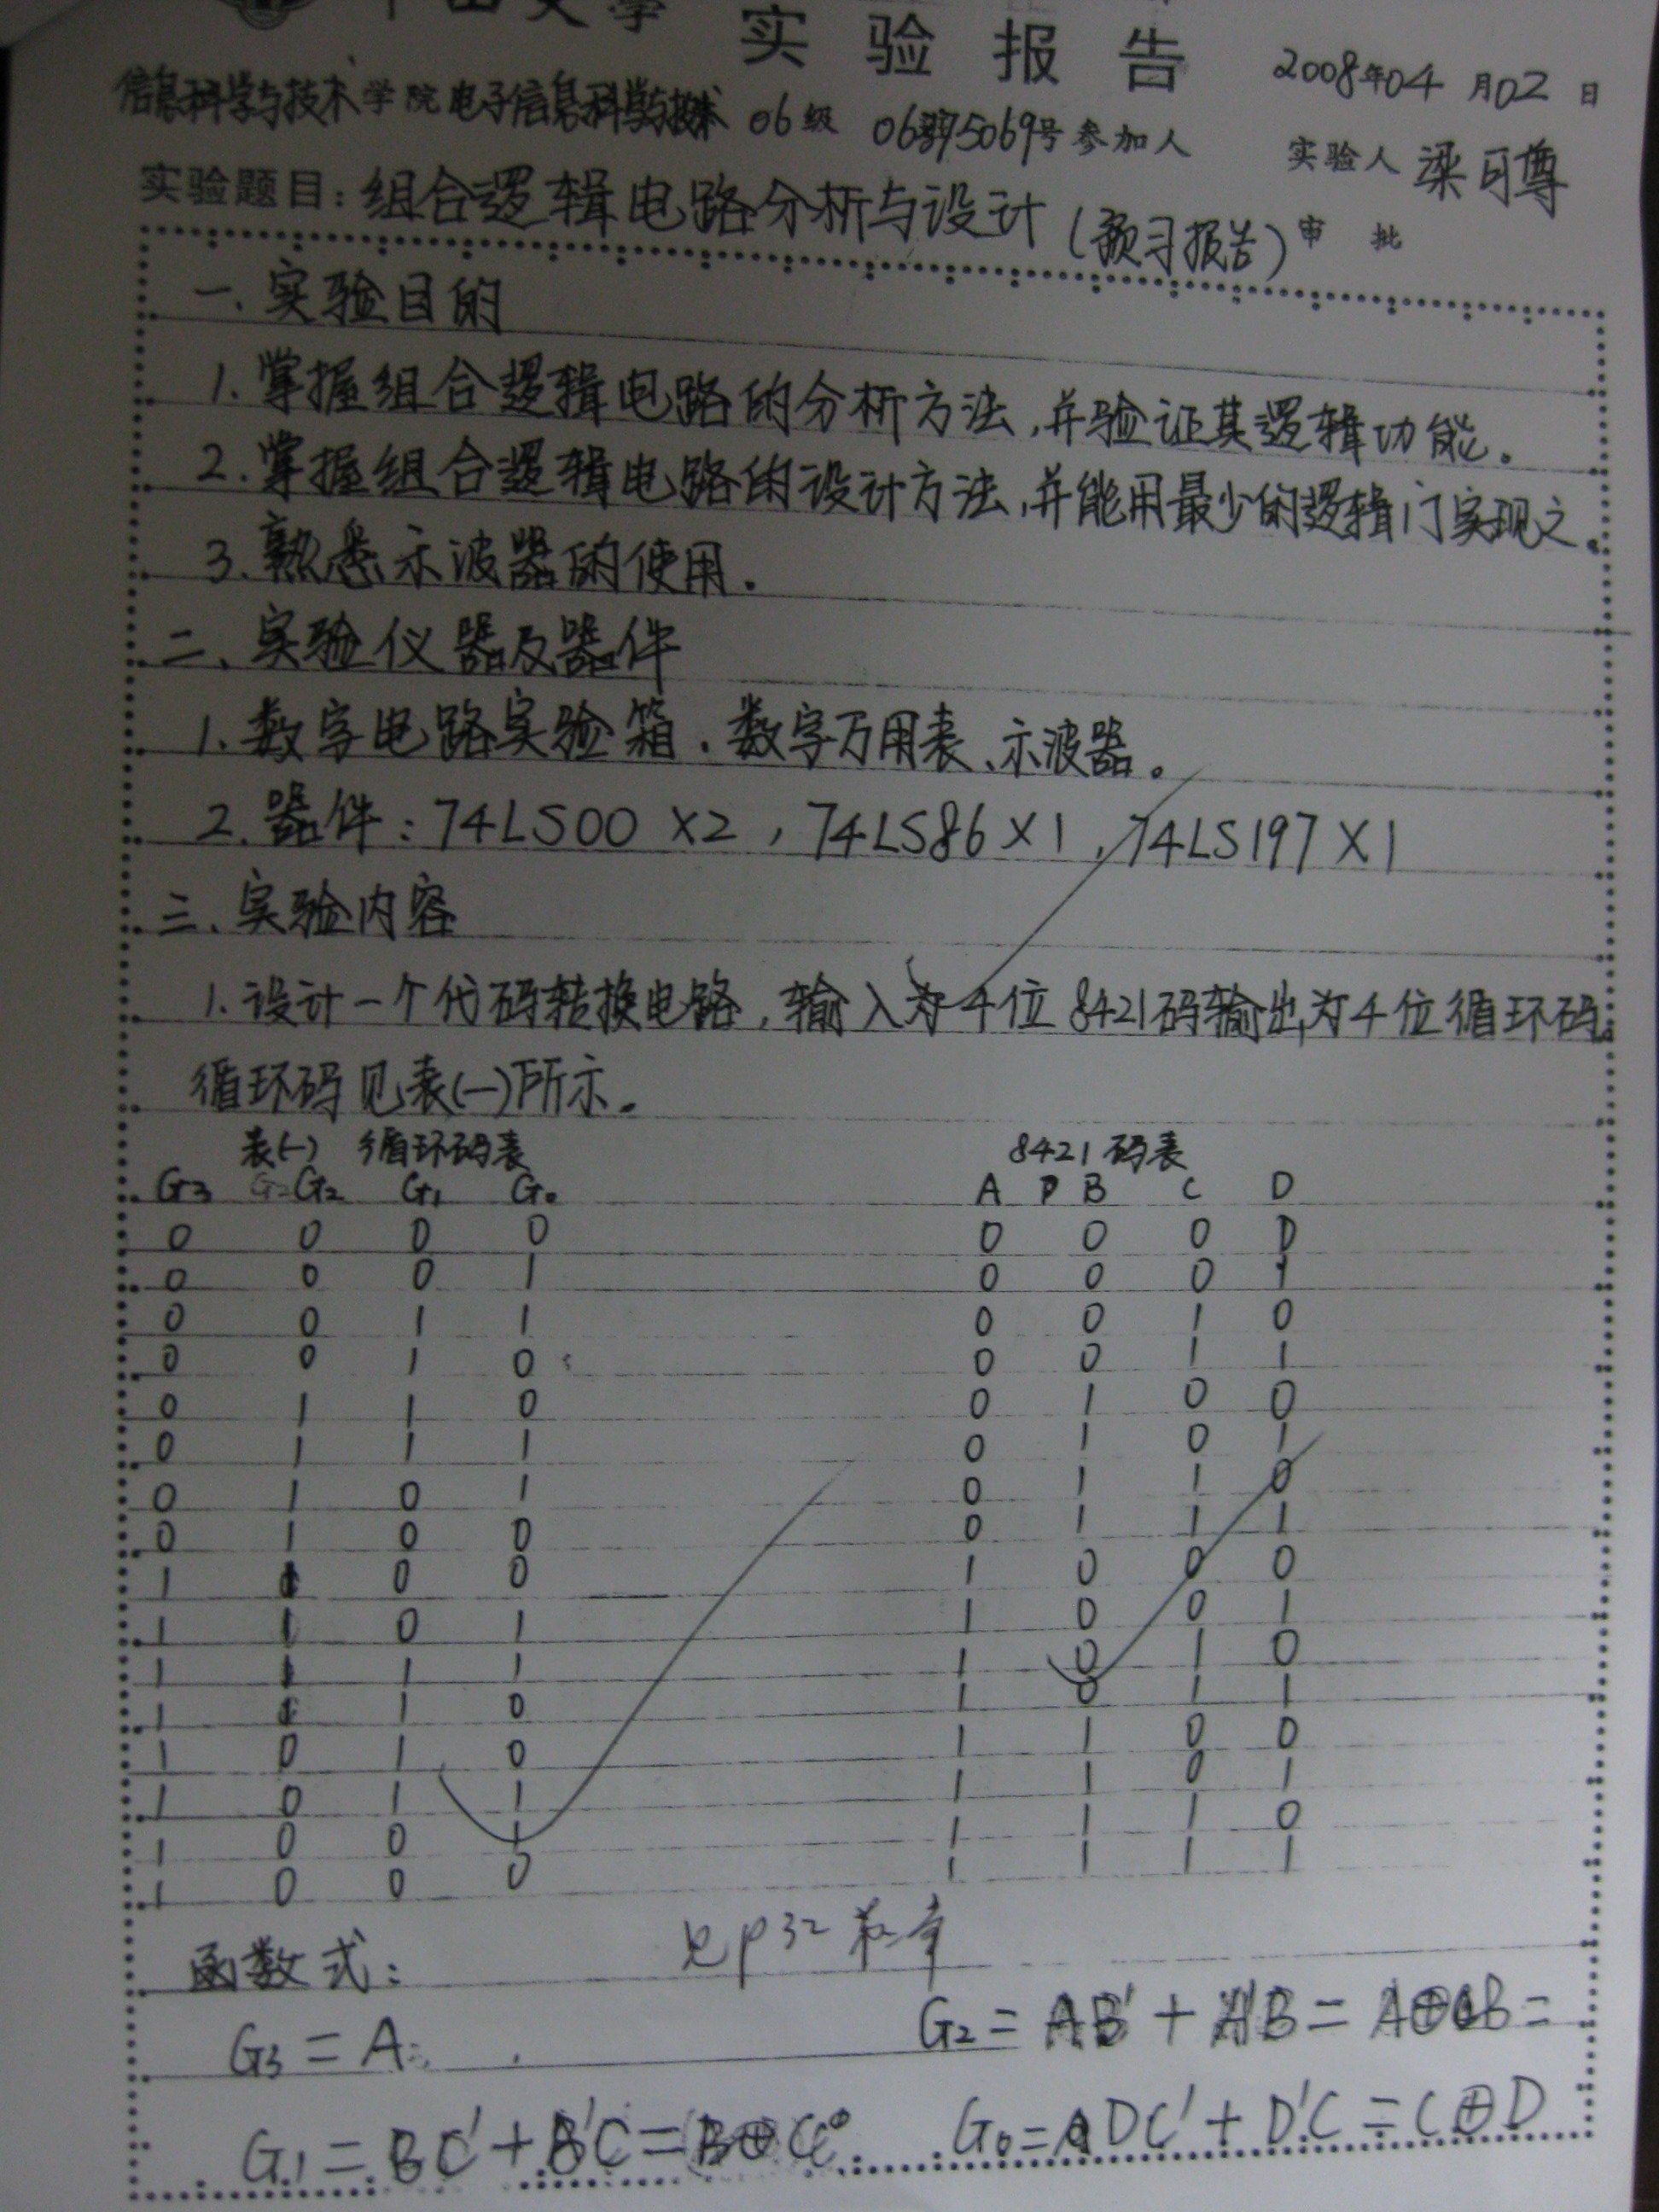 中山大学 实验报告
2008年04月02日
信息科学与技术学院电子信息科学与技术 06级 号参加人 实验人
实验题目:组合逻辑电路分析与设计(预习报告)审 批
一.实验目的
1.掌握组合逻辑电路的分析方法,并验证其逻辑功能。
2.掌握组合逻辑电路的设计方法,并能用最少的逻辑门实现之。
3.熟悉示波器的使用.
二、实验仪器及器件
1.数字电路实验箱、数字万用表、示波器。
2.器件:74LS00 X2,74LS86X1,74LS197X1
三、实验内容
1.设计一个代码转换电路,输入为4位8421码输出,为4位循环码。
循环码见表(一)所示.
表(一) 循环码表 8421码表
G3 G2 G1 G0 A B C D
0 0 0 0 0 0 0 0
0 0 0 1 0 0 0 1
0 0 1 1 0 0 1 0
0 0 1 0 0 0 1 1
0 1 1 0 0 1 0 0
0 1 1 1 0 1 0 1
0 1 0 1 0 1 1 0
0 1 0 0 0 1 1 1
1 1 0 0 1 0 0 0
1 1 0 1 1 0 0 1
1 1 1 1 1 0 1 0
1 1 1 0 1 0 1 1
1 0 1 0 1 1 0 0
1 0 1 1 1 1 0 1
1 0 0 1 1 1 1 0
1 0 0 0 1 1 1 1
函数式: 见P32
G3=A G2=AB'+A'B=A⊕B=
G1=BC'+B'C=B⊕C G0=DC'+D'C=C⊕D